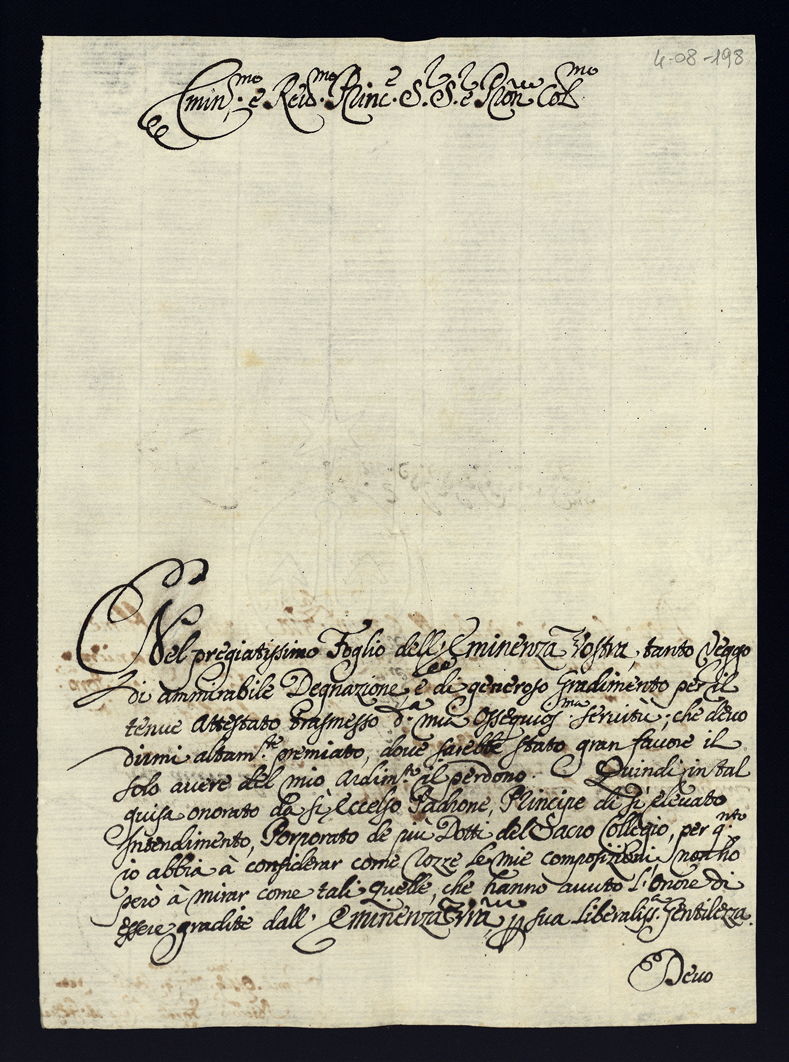 4-08-198
Emin.mo e Reu.mo Princ.e S.r S.r e Pron Col.mo
Nel pregiatissimo Foglio dell'Eminenza Vostra, tanto Veggo
di ammirabile Degnazione, e di generoso Gradimento per il
tenue Attestato trasmesso d.la mia Ossequios.ma seruitù; che deuo
dirmi altam.te premiato, doue sarebbe stato gran fauore il
solo auere del mio Ardim.to il perdono. Quindi in tal
guisa onorato da sì Eccelso Padrone, Principe di sì eleuato
Intendimento, Porporato de più Dotti del Sacro Collegio, per q.nto
io abbia à considerar come rozze le mie composizioni, non hò
però à mirar come tali quelle, che hanno auuto l'Onore di
essere gradite dall'Eminenza Vra p sua Liberaliss.a Gentilezza.
Deuo